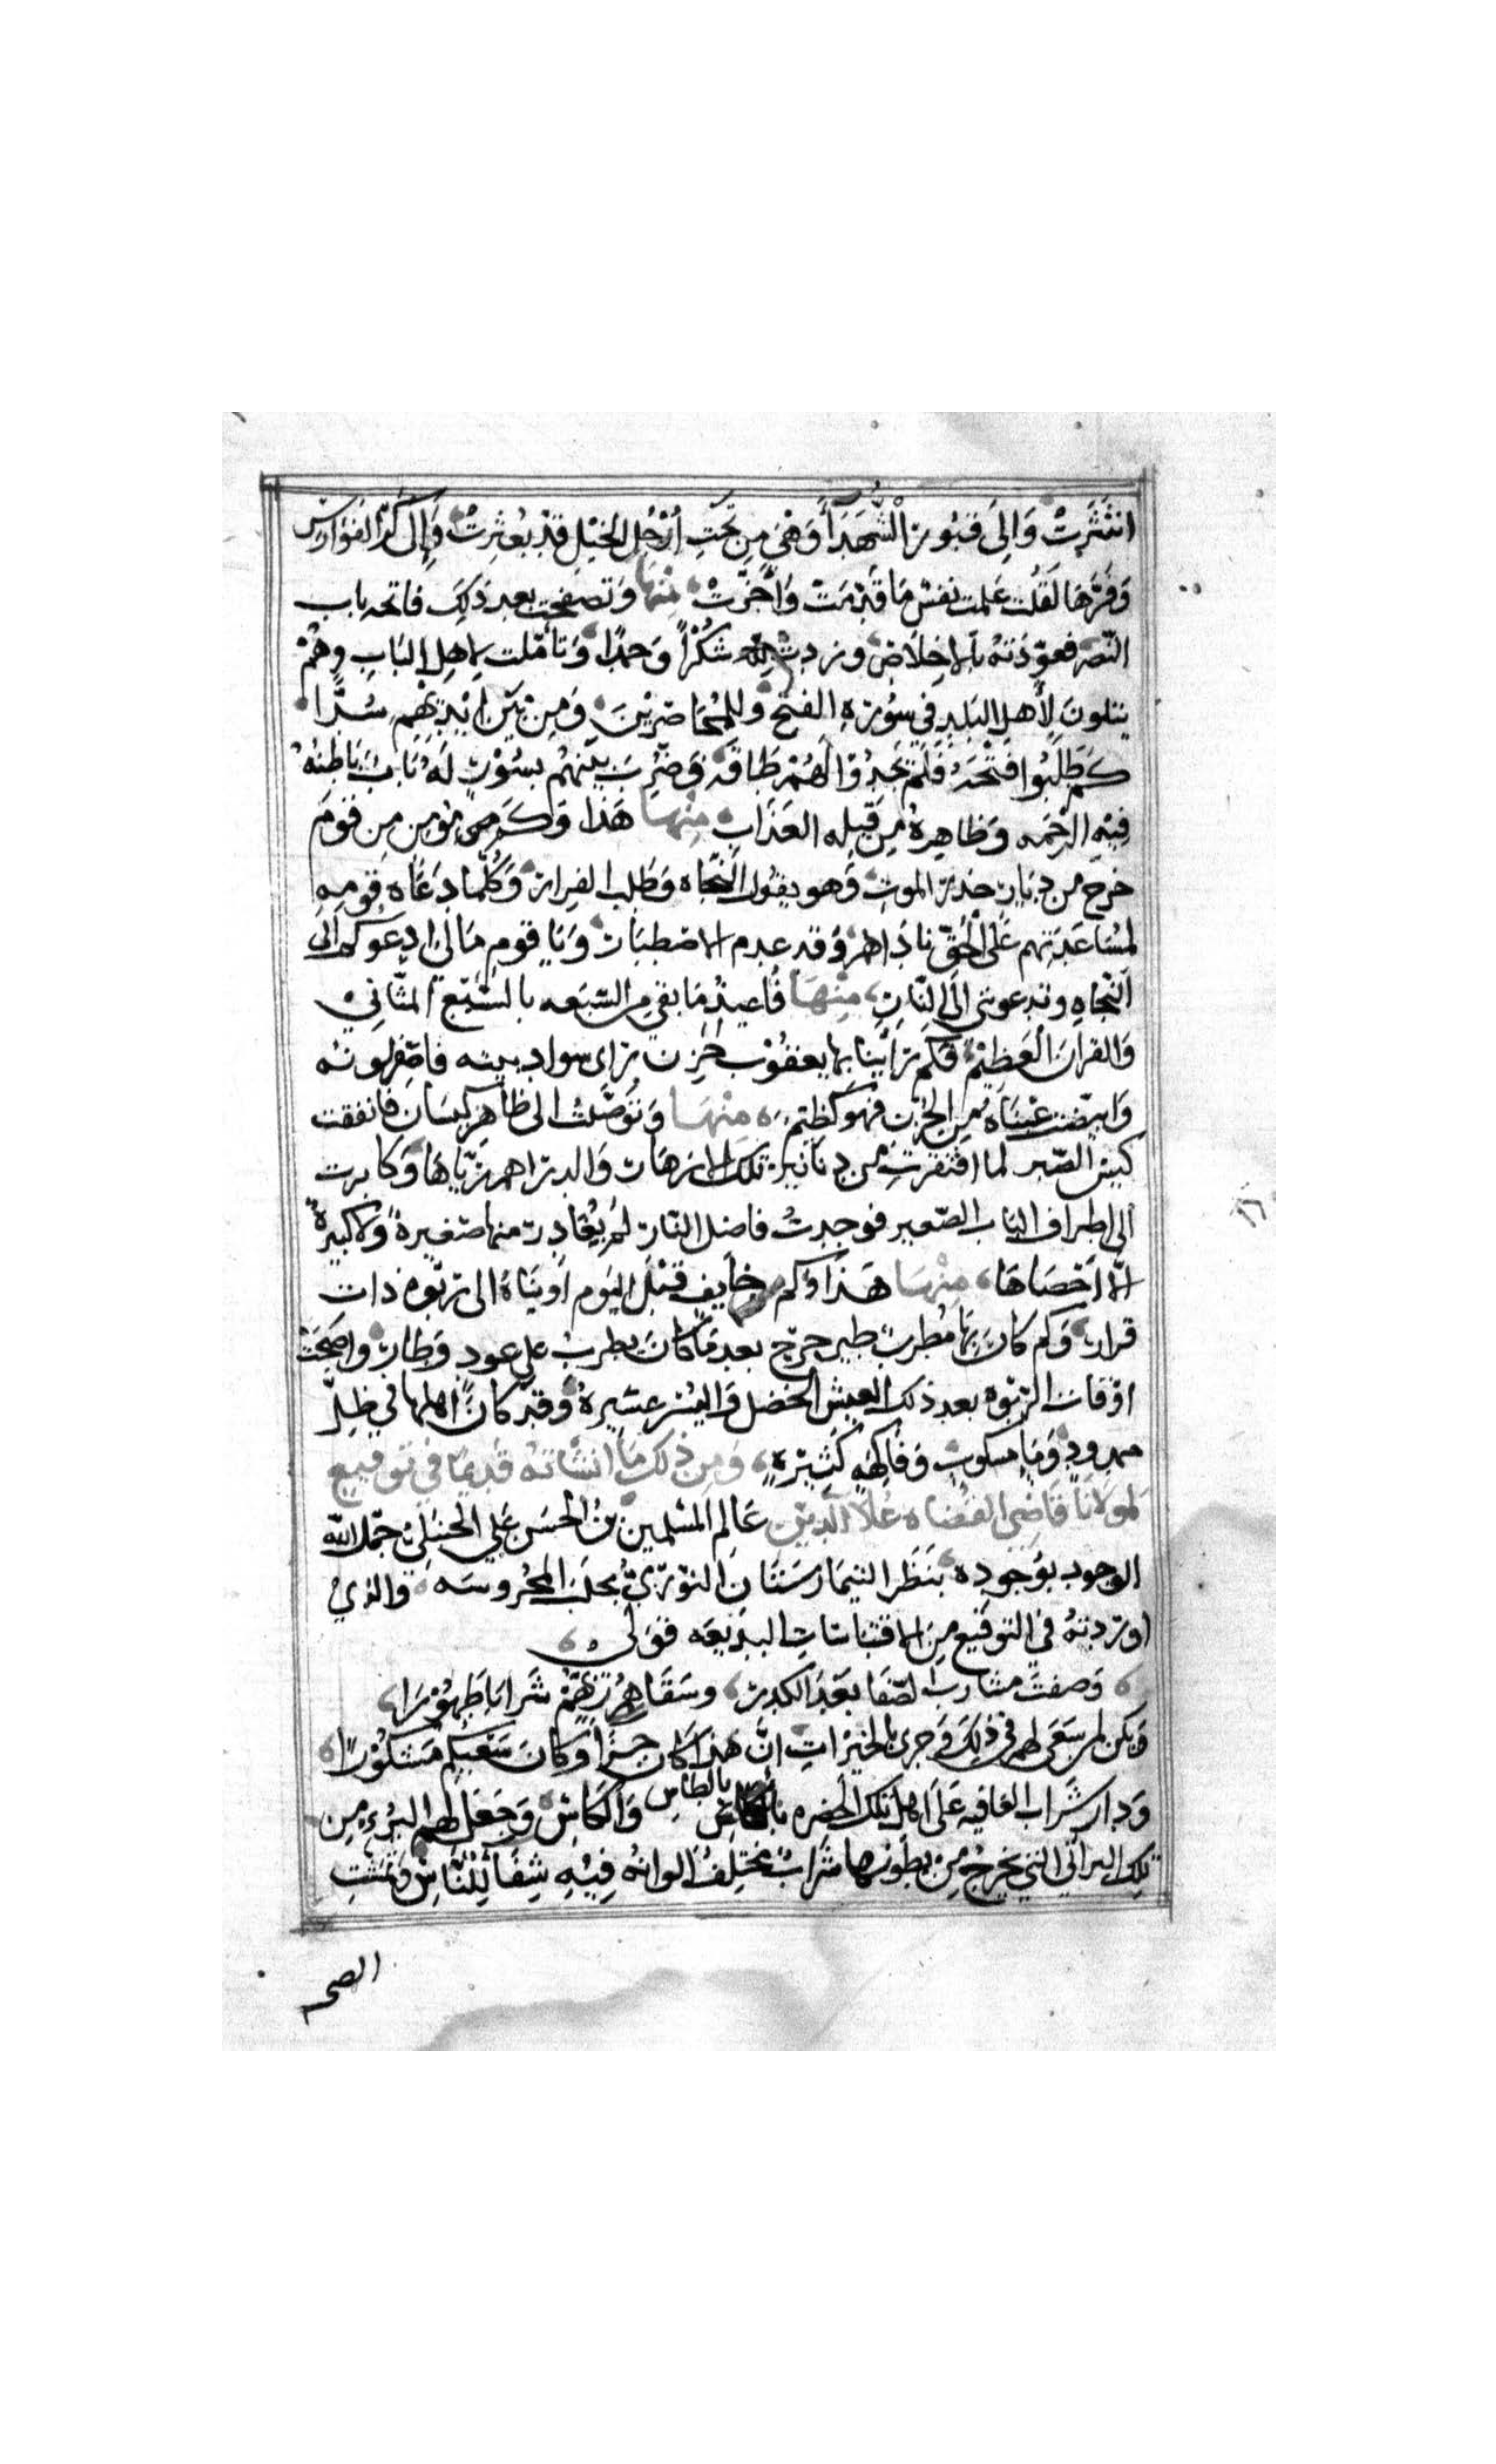 انتَثَرَتْ وَالِىَ قُبُورِ الْشُّهَدَاَ وَهْىَ مِن تَحَتِ اَرْجُلِ الخَيْلِ قَدْ بُعثِرتْ وَاِلى كَرِّ الفَوَارِسْ
وَفَرِّهَا لَقُلْت عَلمت نفسٌ مَا قَدَّمَتْ وَاَخَّرَتْ مِنْهَا وَتصَفحت بعد ذَلِكَ فاتحه باب
النّصر فعوّذتهُ بالاخِلَاص وزدت لله شكُرًا وَحمدًا وَتأمّلت لاهل البَاب وهُمْ
يتلونَ لِأهلِ البَلدِ في سُورَةِ الفتح وَللمُحَاصَرِيْنَ وَمِنْ بَيْن ايْديْهِم سُدًّا
كمَ طَلَبُوا فتْحَهُ فَلَم يَجدُوا لَهُمْ طَاقَه وَضُرِبَ بيْنهُم بسُوْرٍ لَهُ بَابٌ بَاطِنُهُ
فِيْهِ الرَّحْمَه وَظاهِرهُ مِن قِبلِه العَذابِ مِنْهَا هَذا وَكم مؤمن مِن قومٍ
خرج من ديَاره حذرَ الموت وَهو يقوُل النّجاه وَطَلب الفِرار وَكُلّما دَعَاه قومهِ
لمُسَاعَدَتِهم عَلى الْحَقّ ناداهم وَقد عدم الاصْطبَار وَيَا قوم مَا لى ادعوكم الى
النّجاهِ وتدعونني الَى النّارِ مِنْهَا فأعيذُ مَا بقي مِن السّبَعه بالسّبَع المثَاني
وَالقرآن العَظِيْم فكم رَأيْنا بها يعقوْب حُزن رأى سواد بيته فاصْفرّ لونه
وَابيضّت عَيْنَاهُ مِن الحُزن فهو كَظيم مِنْهَا وَتوَصَّلتُ الى ظاهر كيسَان فانفقت
كيسَ الصّبر لما افتقرَت من دنَانير تلك الازهَار وَالدراهم رُباهَا وَكابرت
الى اطراف الباب الصّغير فوجدتُ فاضل النّار لمْ يُغَادِر منها صَغيرةً وَلا كبيرةً
الا أحْصَاهَا مِنْهَا هَذا وَكم خايف قبْل اليوم اويْنَاهُ الى رَبْوهٍ ذات
قرار وَكم كانَ بها مُطربُ طير جرح بعد مَا كانَ يطرب على عود وَطار واصبَحَتْ
اوْقات الرّبْوه بعد ذلك العيش الخضل وَاليُسْر عسيرهُ وَقد كانَ اهلها في ظِلٍّ
ممدودٍ وَمَاءٍ مسكوبٍ وَفاكِهَهٍ كَثِيْرَهٍ وَمِن ذلِكَ مَا انشاتهُ قديمًا في توقيع
لمولانَا قاضي القضاه علا الدين عَالِم المُسْلمينَ بنُ الحُسَن عَلي الحنبَلِىّ جمّل اللّه
الوجود بوُجُودِه بنَظَر البيمَارسْتَان النّوْرِيّ بحلبَ المحرُوسَه وَالذي
اورَدتهُ في التوقيع مِنَ الاقتباسَاتِ البَدِيْعَه قوَلى
وَصفتَ مَشاربُ الصّفا بَعْدَ الكدر وسَقَاهُمْ ربّهمْ شَرابًا طَهُوْرًا
وَيكن لمن سَعَى لهم في ذلكَ وَجرى بالخيْراتِ انّ هذا كان لكم جزاً وَكانَ سَعْيكم مَشكُوْرًا
وَدار شَراب العَافيه عَلَى اهل تلك الحضره بالطّاسِ وَالكَاس وَجَعَلَ لهم البُرْءَ مِن
تلك البراني التي يخرجُ مِنْ بطوُنها شَرابٌ مختلِفُ الوانهُ فِيْهِ شِفَاً لِلنَّاسْ وَتمشّتِ
الصحه